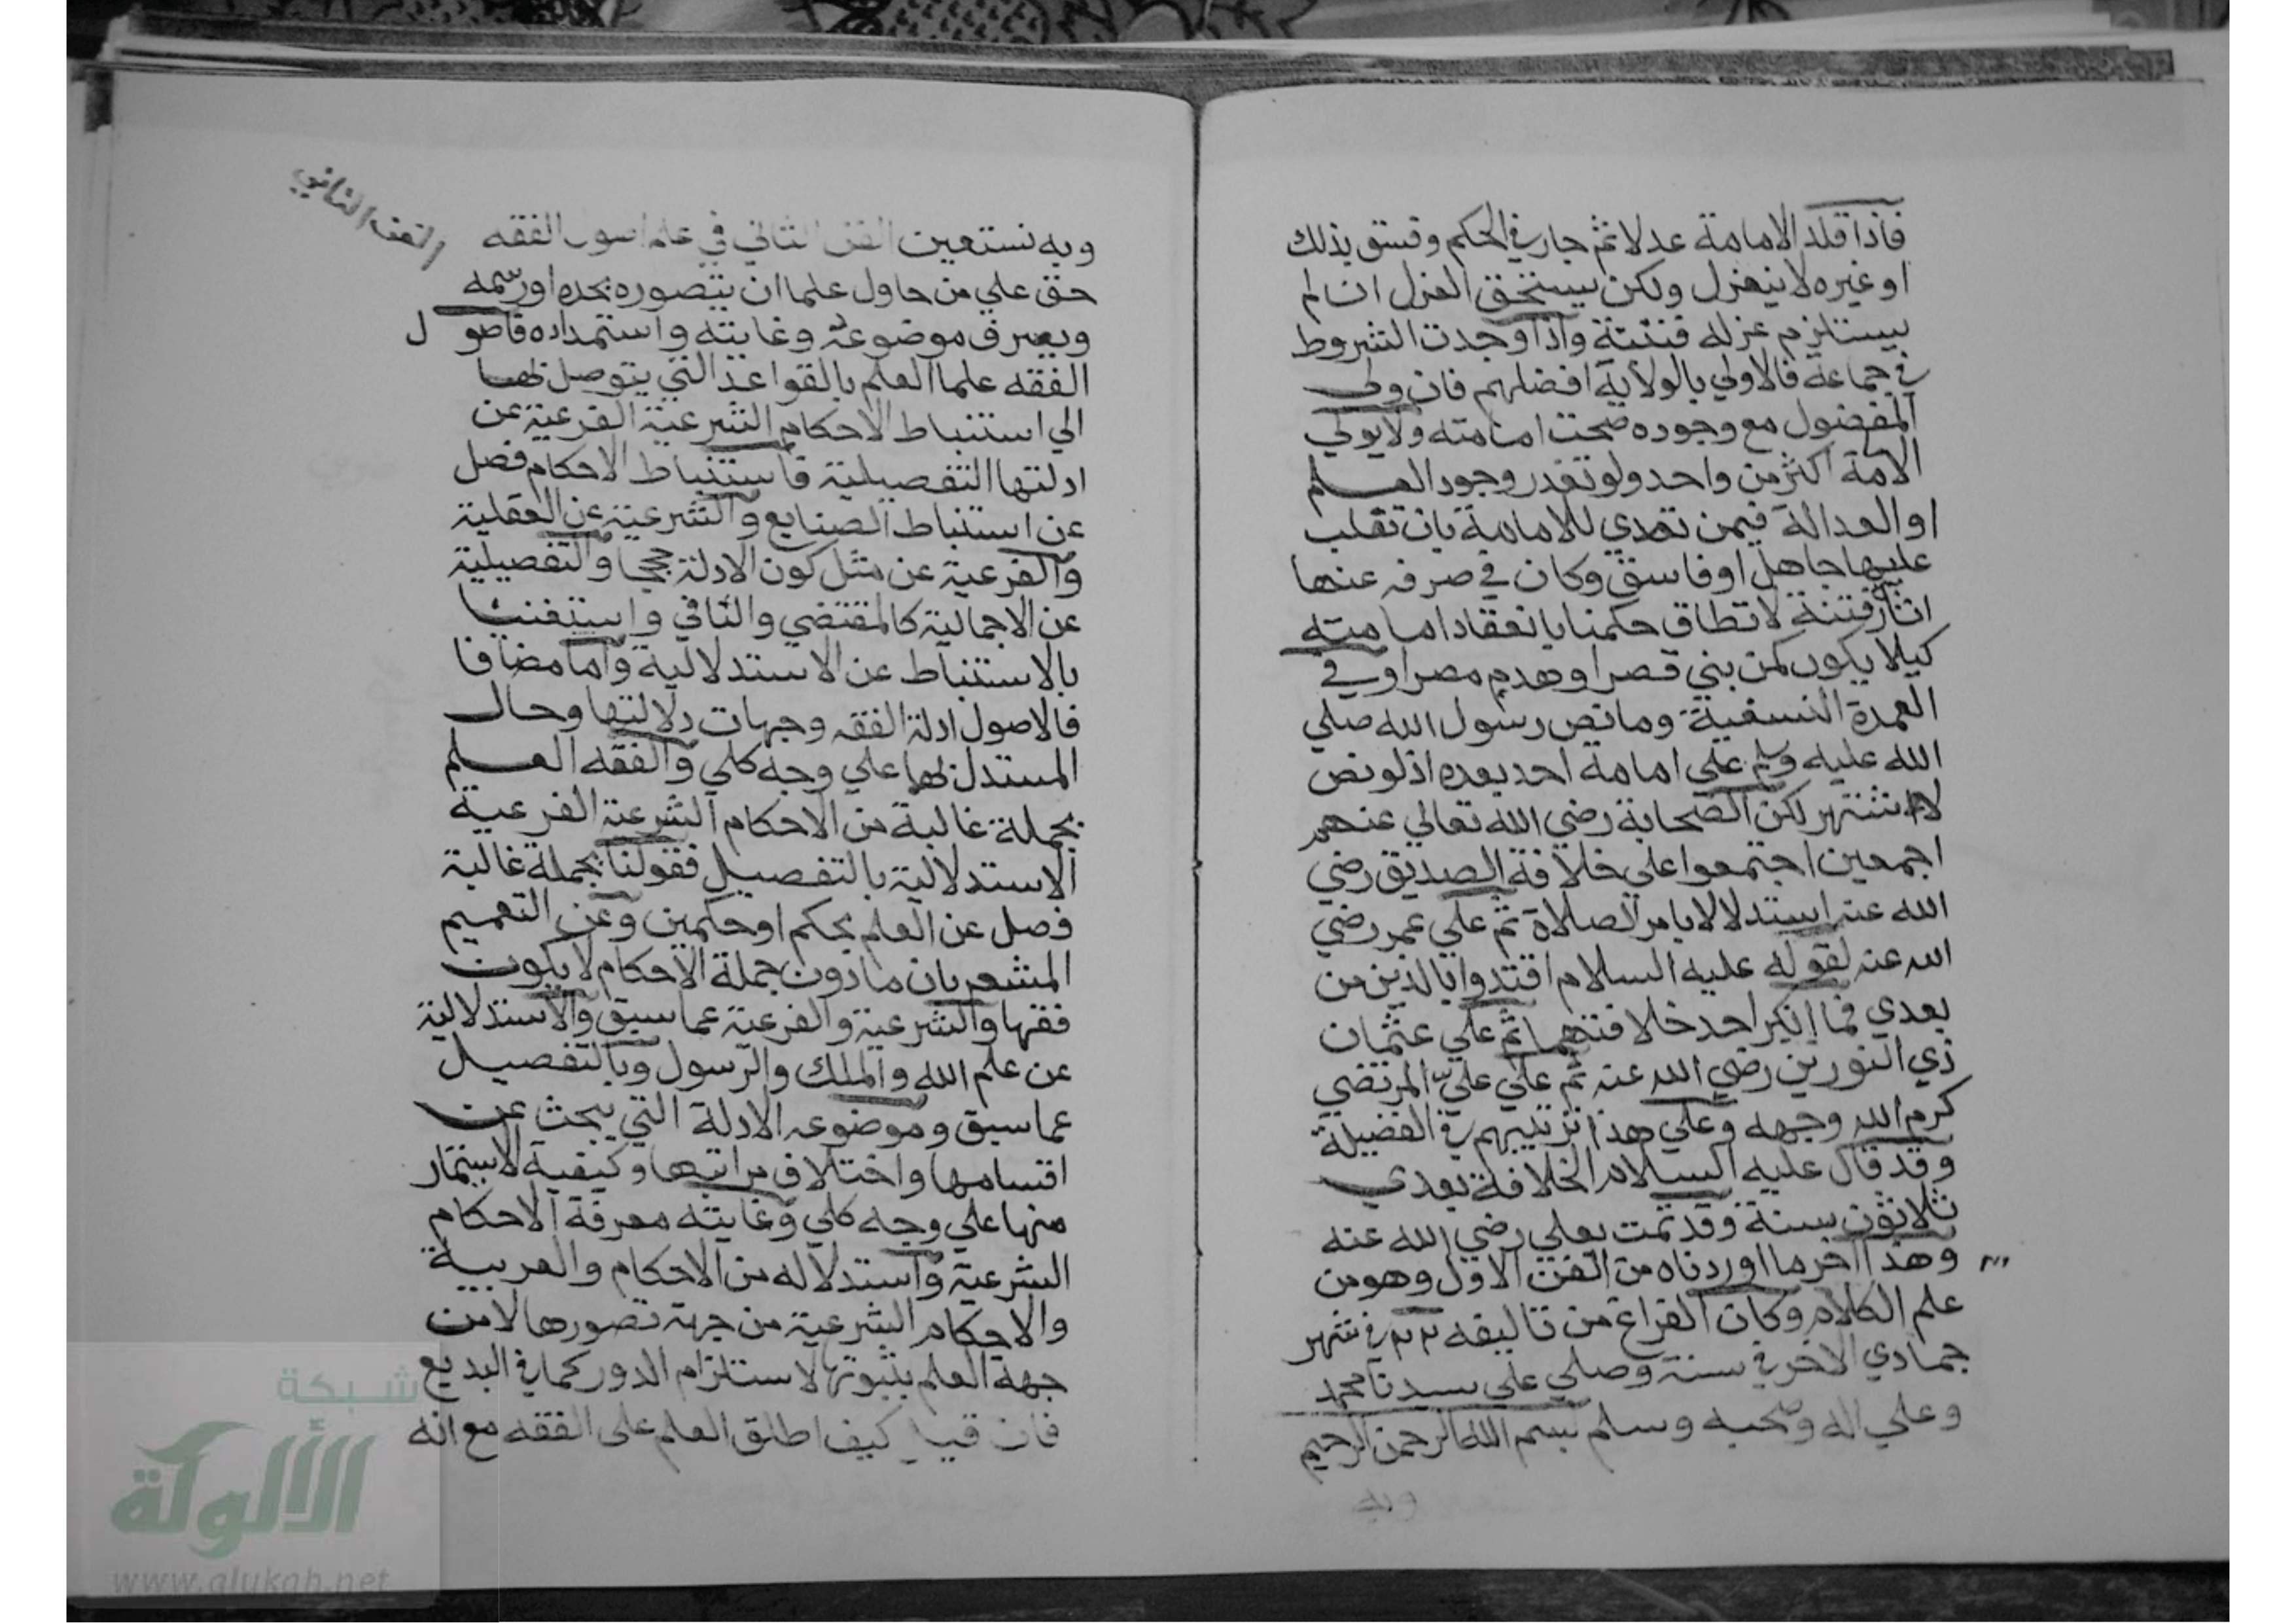 فاذا قلد الامامة عدلا ثم جار في الحكم وفسق بذلك
او غيره لا ينعزل ولكن يستحق العزل ان لم
يستلزم عزله فتنة واذا وجدت الشروط
في جماعة فالاولي بالولاية افضلهم فان ولي
المفضول مع وجوده صحت امامته ولا يولي
الامة اكثر من واحد ولو تعذر وجود العلم
او العدالة فيمن تصدي للامامة بان تغلب
عليها جاهل او فاسق وكان في صرفه عنها
اثارة فتنة لا تطاق حكمنا بانعقاد امامته
كيلا يكون كمن بني قصرا وهدم مصرا وفي
العمدة النسفية وما نص رسول الله صلي
الله عليه وسلم علي امامة احد بعده اذ لو نص
لاشتهر لكن الصحابة رضي الله تعالي عنهم
اجمعين اجتمعوا علي خلافة الصديق رضي
الله عنه استدلالا بامر الصلاة ثم علي عمر رضي
الله عنه لقوله عليه السلام اقتدوا بالذين من
بعدي فما انكر احد خلافتهما ثم علي عثمان
ذي النورين رضي الله عنه ثم علي علي المرتضي
كرم الله وجهه وعلي هذا ترتيبهم في الفضيلة
وقد قال عليه السلام الخلافة بعدي
ثلاثون سنة وقد تمت بعلي رضي الله عنه
وهذا آخر ما اوردناه من الفن الاول وهو من
علم الكلام وكان الفراغ من تاليفه في شهر
جمادي الاخر في سنة وصلي علي سيدنا محمد
وعلي اله وصحبه وسلم بسم الله الرحمن الرحيم
وبه
الفن الثاني
وبه نستعين الفن الثاني في علم اصول الفقه
حق علي من حاول علما ان يتصوره بحده او رسمه
ويعرف موضوعه وغايته واستمداده فاصول
الفقه علما العلم بالقواعد التي يتوصل بها
الي استنباط الاحكام الشرعية الفرعية عن
ادلتها التفصيلية فاستنباط الاحكام فصل
عن استنباط الصنايع والشرعية عن العقلية
والفرعية عن مثل كون الادلة حججا والتفصيلية
عن الاجمالية كالمقتضي والنافي واستغنينا
بالاستنباط عن الاستدلالية واما مضافا
فالاصول ادلة الفقه وجهات دلالتها وحال
المستدل بها علي وجه كلي والفقه العلم
بجملة غالبة من الاحكام الشرعية الفرعية
الاستدلالية بالتفصيل فقولنا بجملة غالبة
فصل عن العلم بحكم او حكمين وعن التعميم
المشعر بان ما دون جملة الاحكام لا يكون
فقها والشرعية والفرعية عما سبق والاستدلالية
عن علم الله والملك والرسول وبالتفصيل
عما سبق وموضوعه الادلة التي يبحث عن
اقسامها واختلاف مراتبها وكيفية الاستثمار
منها علي وجه كلي وغايته معرفة الاحكام
الشرعية واستدلاله من الاحكام والعربية
والاحكام الشرعية من جهة تصورها لا من
جهة العلم بثبوتها لاستلزام الدور كما في البديع
فان قيل كيف اطلق العلم على الفقه مع انه
شبكة
الألوكة
www.alukah.net